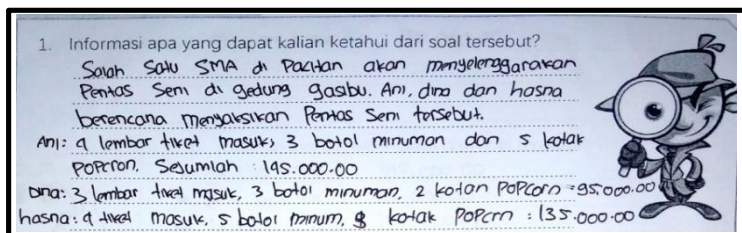 1. Informasi apa yang dapat kalian ketahui dari soal tersebut?
Salah Satu SMA di Pacitan akan menyelenggarakan
Pentas Seni di gedung gasibu. Ani, dina dan hasna
berencana menyaksikan Pentas Seni tersebut.
Ani: 4 lembar tiket masuk, 3 botol minuman dan 5 kotak
POPcron, Sejumlah : 145.000.00
Dina: 3 lembar tiket masuk, 3 botol minuman, 2 kotak PoPcorn = 95.000.00
hasna: 4 tiket masuk, 5 botol minum, 8 kotak PoPcrn : 135.000.00